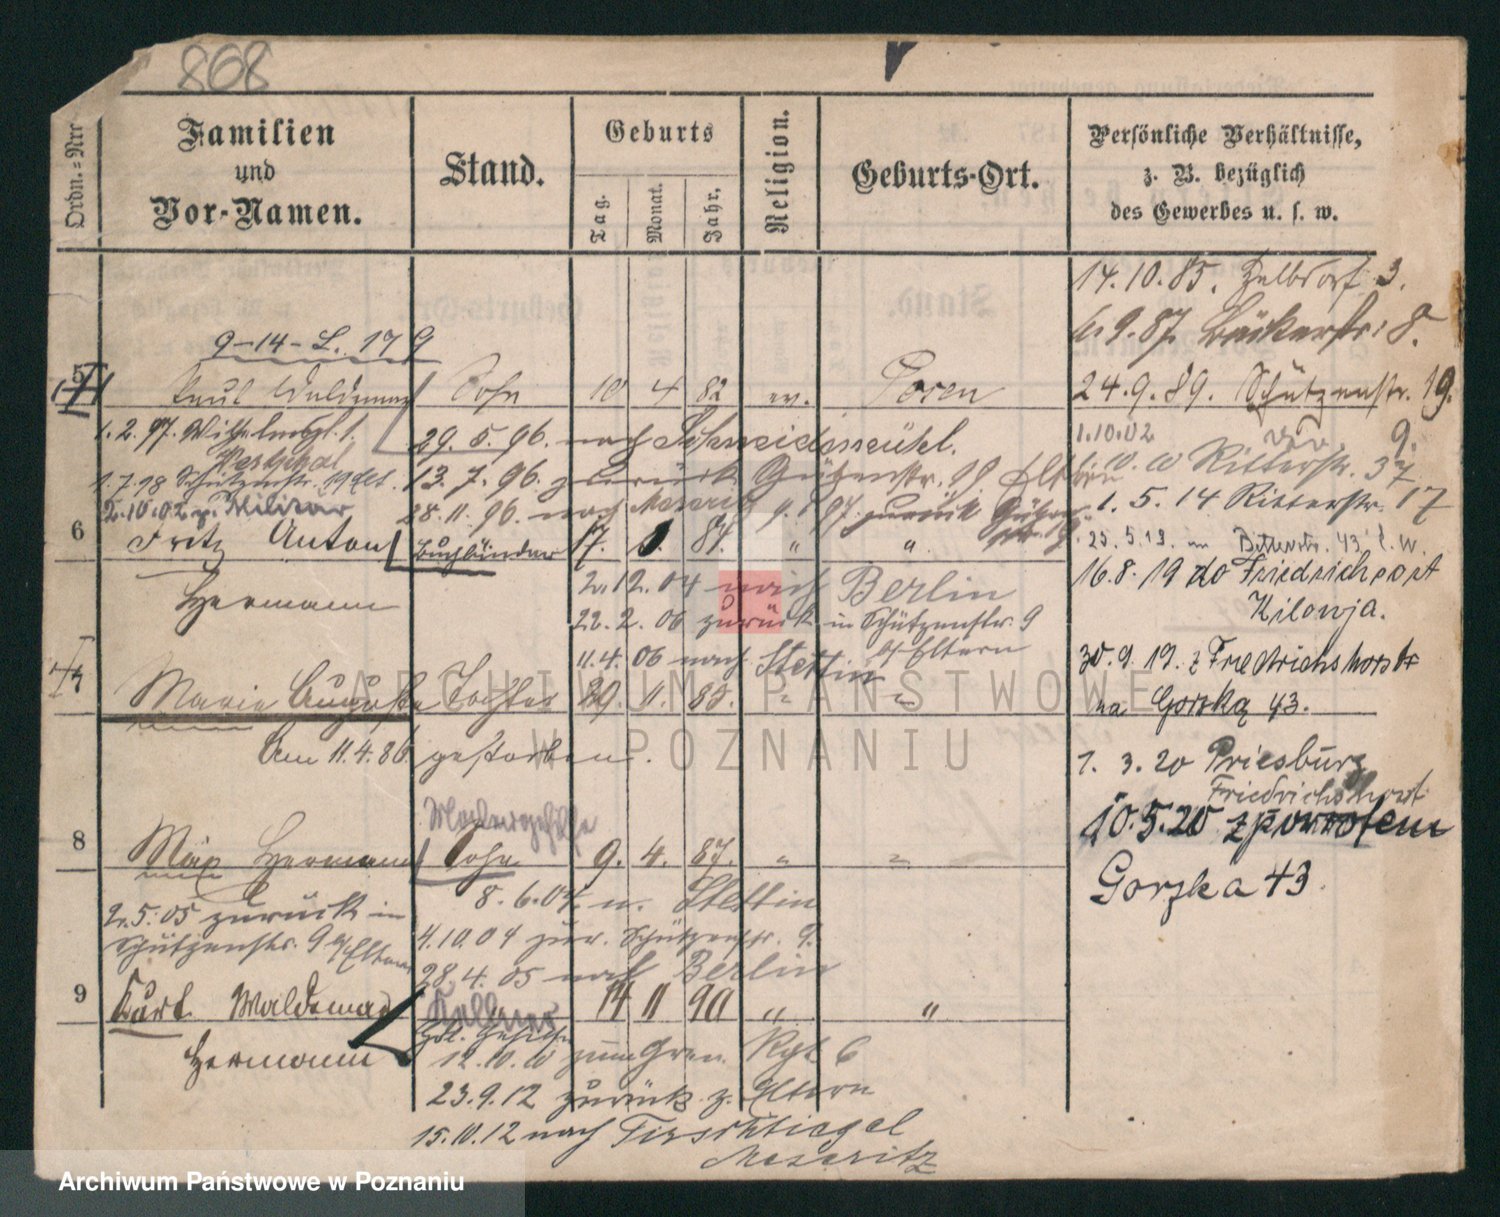 868
Ordn.=Nr.
Familien
und
Vor-Namen.
Stand.
Geburts
Tag.
Monat.
Jahr.
Religion.
Geburts-Ort.
Persönliche Verhältnisse,
z. B. bezüglich
des Gewerbes u. s. w.
14.10.85. 3.
9.87. Bäckerstr. 8.
9-14-L. 179
5 Paul Waldemar Sohn 10 4 82 ev. Posen
24.9.89. Schützenstr. 19.
1.2.97.
29.5.96. nach Schneidemühl.
1.10.02 9.
13.7.96. zurück Schützenstr. 19 Eltern
Ritterstr. 37
1.7.98 Schützenstr. 19
28.11.96. nach Meseritz 97. zurück
1.5.14 Ritterstr. 17
2.10.02 z. Militär
6 Fritz Anton Buchbinder 17. 84. " "
Hermann
2.12.04 nach Berlin
16.8.19 do Friedrichsort
Kilonja.
22.2.06 zurück in Schützenstr. 9
b/Eltern
11.4.06 nach Stettin
30.9.19. z Friedrichshorst
7 Marie Auguste Tochter 29. 11. 85. " "
na Gorską 43.
Am 11.4.86 gestorben.
1.3.20 Priesburg
Friedrichshort
10.5.20 zpowrotem
Gorska 43.
8 Max Hermann Sohn 9. 4. 87. " "
8.6.04 n. Stettin
2.5.05 zurück in
Schützenstr. 9 b/Eltern
4.10.04 zur. Schützenstr. 9.
28.4.05 nach Berlin
9 Kurt Waldemar Kellner 14 11 90 " "
Hermann
12.10.10 zum Gren. Rgt 6
23.9.12 zurück z. Eltern
15.10.12 nach Tirschtiegel
Meseritz
ARCHIWUM PAŃSTWOWE
W POZNANIU
Archiwum Państwowe w Poznaniu